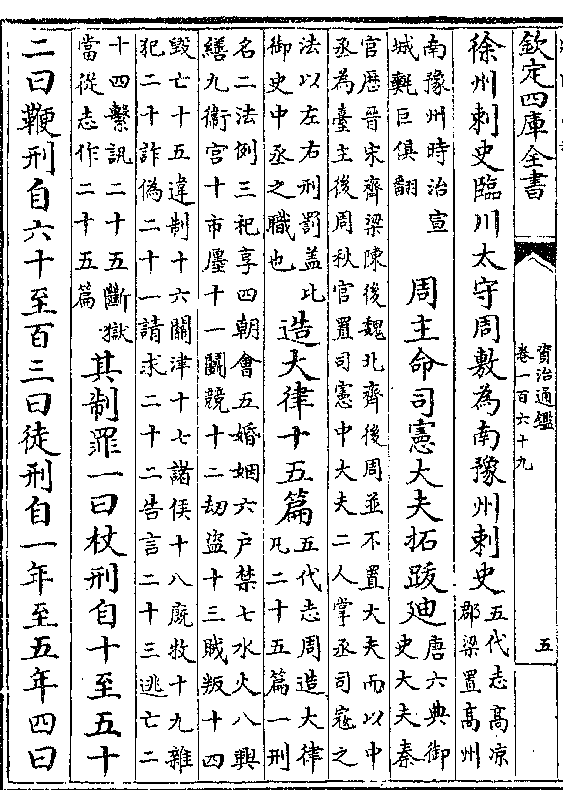 欽定四庫全書
資治通鑑
卷一百六十九
五
徐州刺史臨川太守周敷為南豫州刺史
五代志高凉
郡梁置高州
南豫州時治宣
城㲄巨俱翻
周主命司憲大夫拓跋廸
唐六典御
史大夫秦
官歴晉宋齊梁陳後魏北齊後周並不置大夫而以中
丞為臺主後周秋官置司憲中大夫二人掌丞司寇之
法以左右刑罰盖比
御史中丞之職也
造大律十五篇
五代志周造大律
凡二十五篇一刑
名二法例三祀享四朝會五婚姻六户禁七水火八興
繕九衛宫十市廛十一鬭競十二刦盜十三賊叛十四
毁亡十五違制十六關津十七諸侯十八廐牧十九雜
犯二十詐偽二十一請求二十二告言二十三逃亡二
十四繫訊二十五斷獄
當從志作二十五篇
其制罪一曰杖刑自十至五十
二曰鞭刑自六十至百三曰徒刑自一年至五年四曰